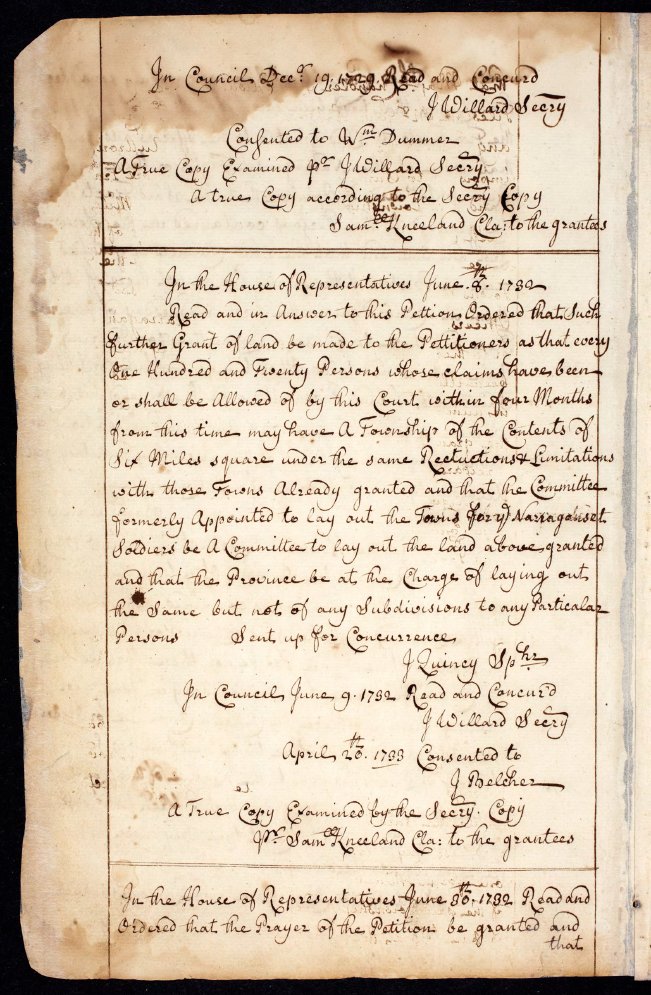 In Council Decr. 19. 1729. Read and Concurd
J Willard Secry
Consented to Wm Dummer
A True Copy Examined pr J Willard Secry
A true Copy according to the Secry Copy
Saml. Kneeland Cla: to the grantees
In the House of Representatives June 8th. 1732
Read and in Answer to this Pettion Ordered that Such
further Grant of land be made to the Pettitioners as that every
One Hundred and Twenty Persons whose claims have been
or shall be Allowed of by this Court within four Months
from this time may have A Township of the Contents of
Six Miles square under the same Restrictions & Limitations
with those Towns Already granted and that the Committee
formerly Appointed to lay out the Towns for ye Narraganset
Soldiers be A Committee to lay out the land above granted
and that the Province be at the Charge of laying out
the Same but not of any Subdivisions to any Particular
Persons Sent up for Concurrence
J Quincy Spkr
In Council June 9. 1732 Read and Concurd
J Willard Secry
April 26th. 1733 Consented to
J Belcher
A True Copy Examined by the Secry. Copy
Pr Saml Kneeland Cla: to the grantees
In the House of Representatives June 30th. 1732 Read and
Ordered that the Prayer of the Petition be granted and
that